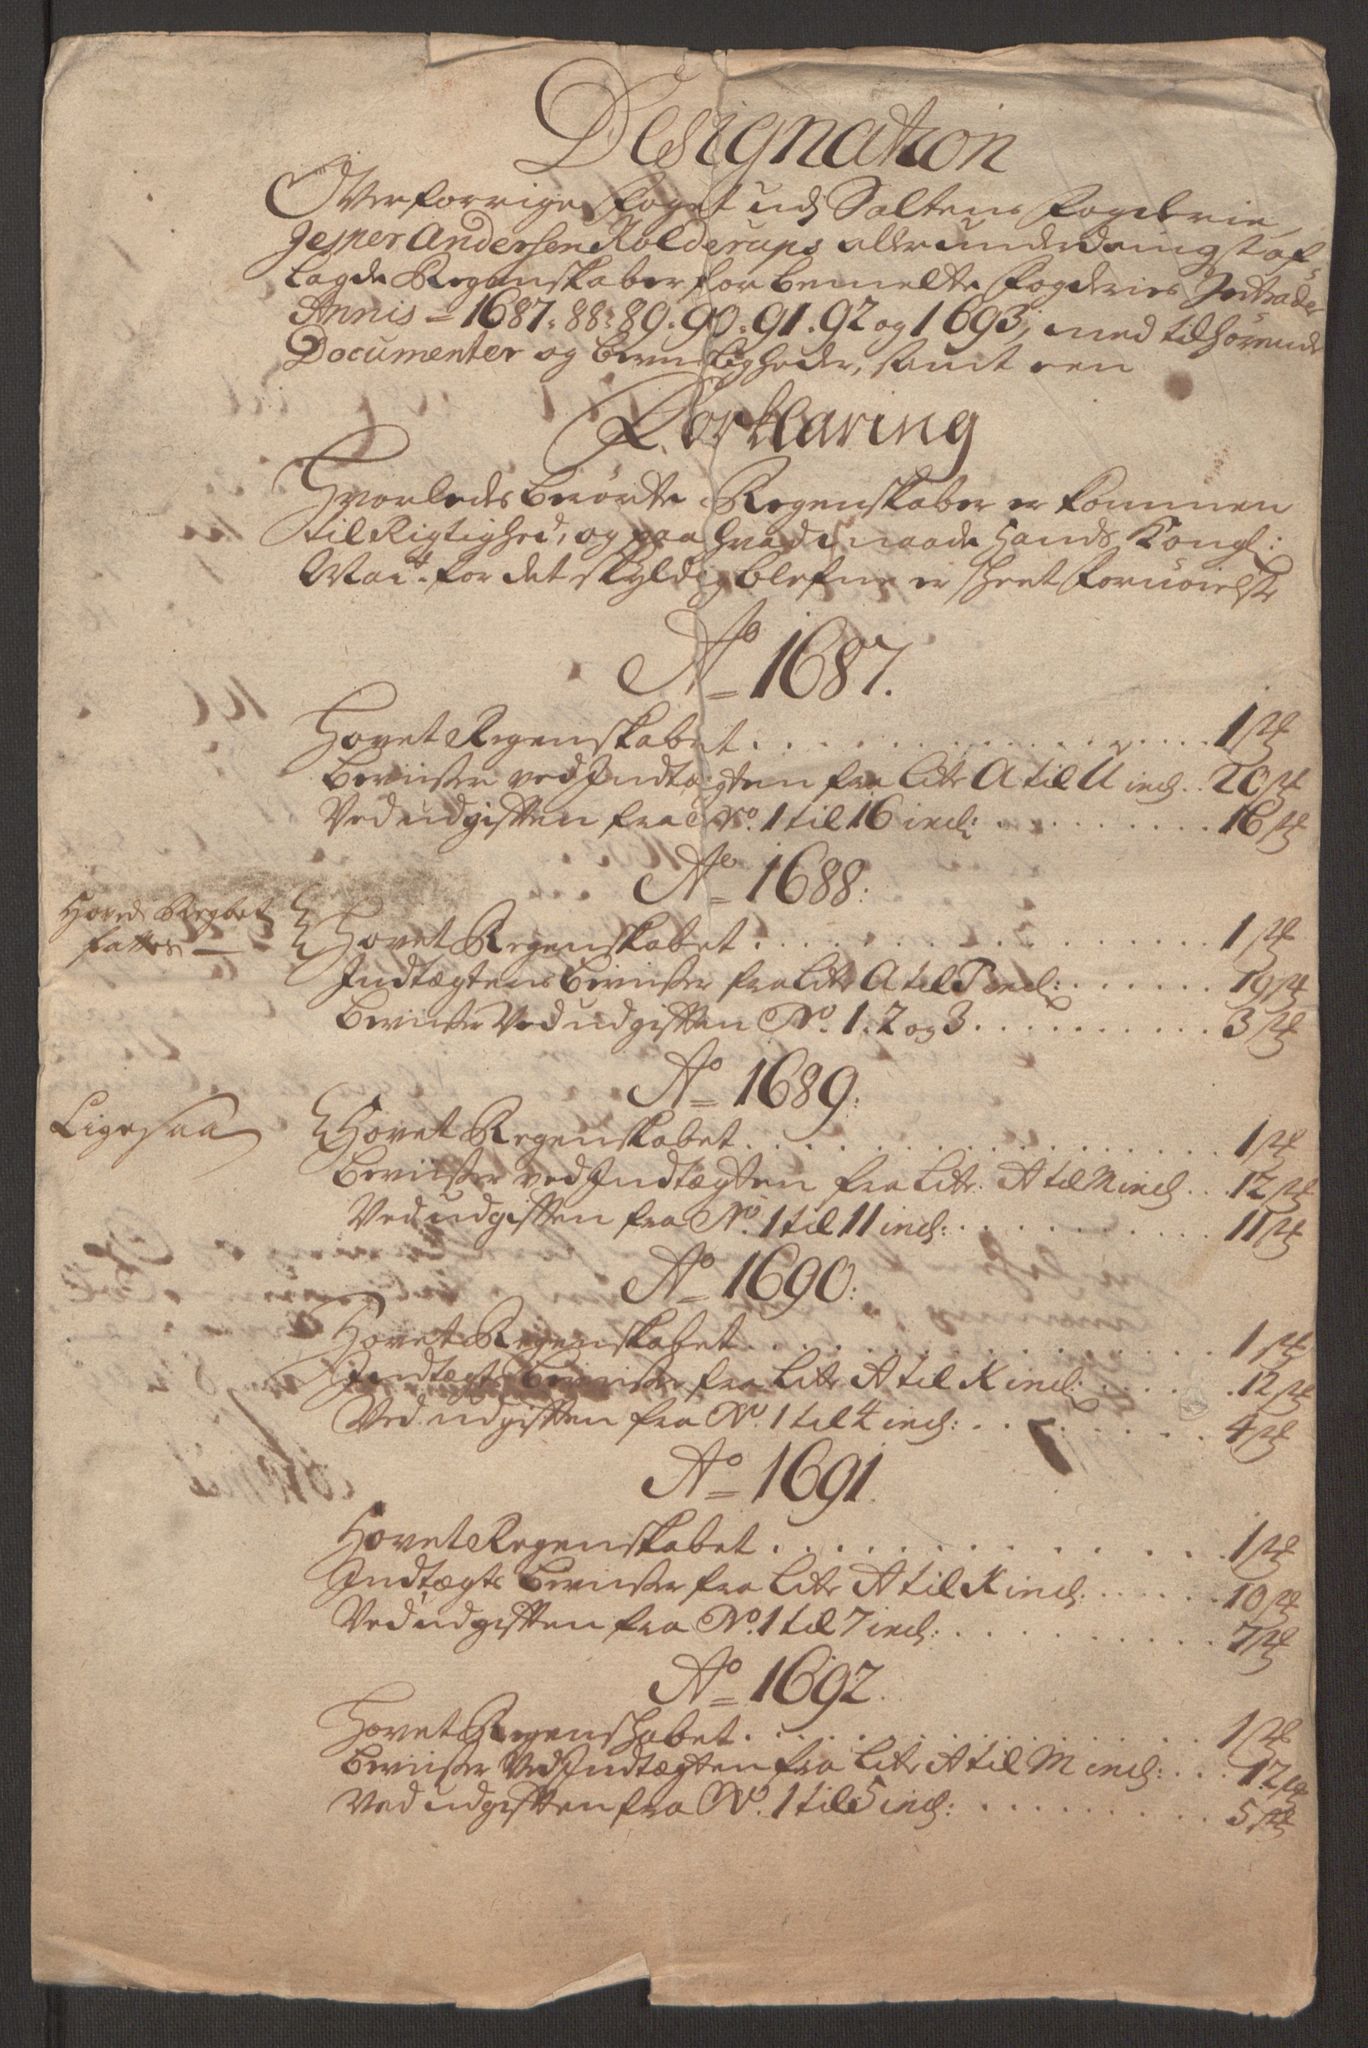 Designation
Ofver forrige Foget udj Saltens Fogderie,
Jesper Andersen Kolderups allerunderdanigst af-
lagde Regenskaber for bemelte Fogderies Indtrader
Annis = 1687. 88. 89. 90. 91. 92 og 1693, med tilhørende
Documenter og bevisligheder, samt een
Forklaring
Hvorledes berørte Regenskaber er kommen
til Rigtighed, og paa hvad maade Hands Kongl:
Mait. for det skyldig blefne er skeet fornøielse
Ao= 1687.
Hovet Regenskabet . . . 1 st
Beviiser ved Indtægten fra Litr A til U incl. . 20 st
Ved udgifften fra No. 1 til 16 incl: . . . 16 st
Ao= 1688:
Hoved Regbet
fattes —
Hovet Regenskabet . . . 1 st
Indtægtens Beviiser fra Litr A til incl: . . . 19 st
Beviiser Ved udgifften No. 1. 2 og 3. . . . 3 st
Ao= 1689:
Ligesaa
Hovet Regenskabet . . . 1 st
Beviiser ved Indtægten fra Litr. A til M incl. . . 12 st
Ved udgifften fra No. 1 til 11 incl: . . . 11 st
Ao= 1690:
Hovet Regenskabet . . . 1 st
Indtægts Beviiser fra Litr A til K incl: . . . 12 st
Ved udgifften fra No. 1 til 4 incl: . . . 4 st
Ao= 1691.
Hovet Regenskabet . . . 1 st
Indtægts Beviiser fra Litr A til K incl: . . . 10 st
Ved udgifften fra No. 1 til 7 incl: . . . 7 st
Ao= 1692.
Hovet Regenskabet . . . 1 st
Beviiser Ved Indtægten fra Litr A til M incl: . . 12 st
Ved udgifften fra No. 1 til 5 incl: . . . 5 st